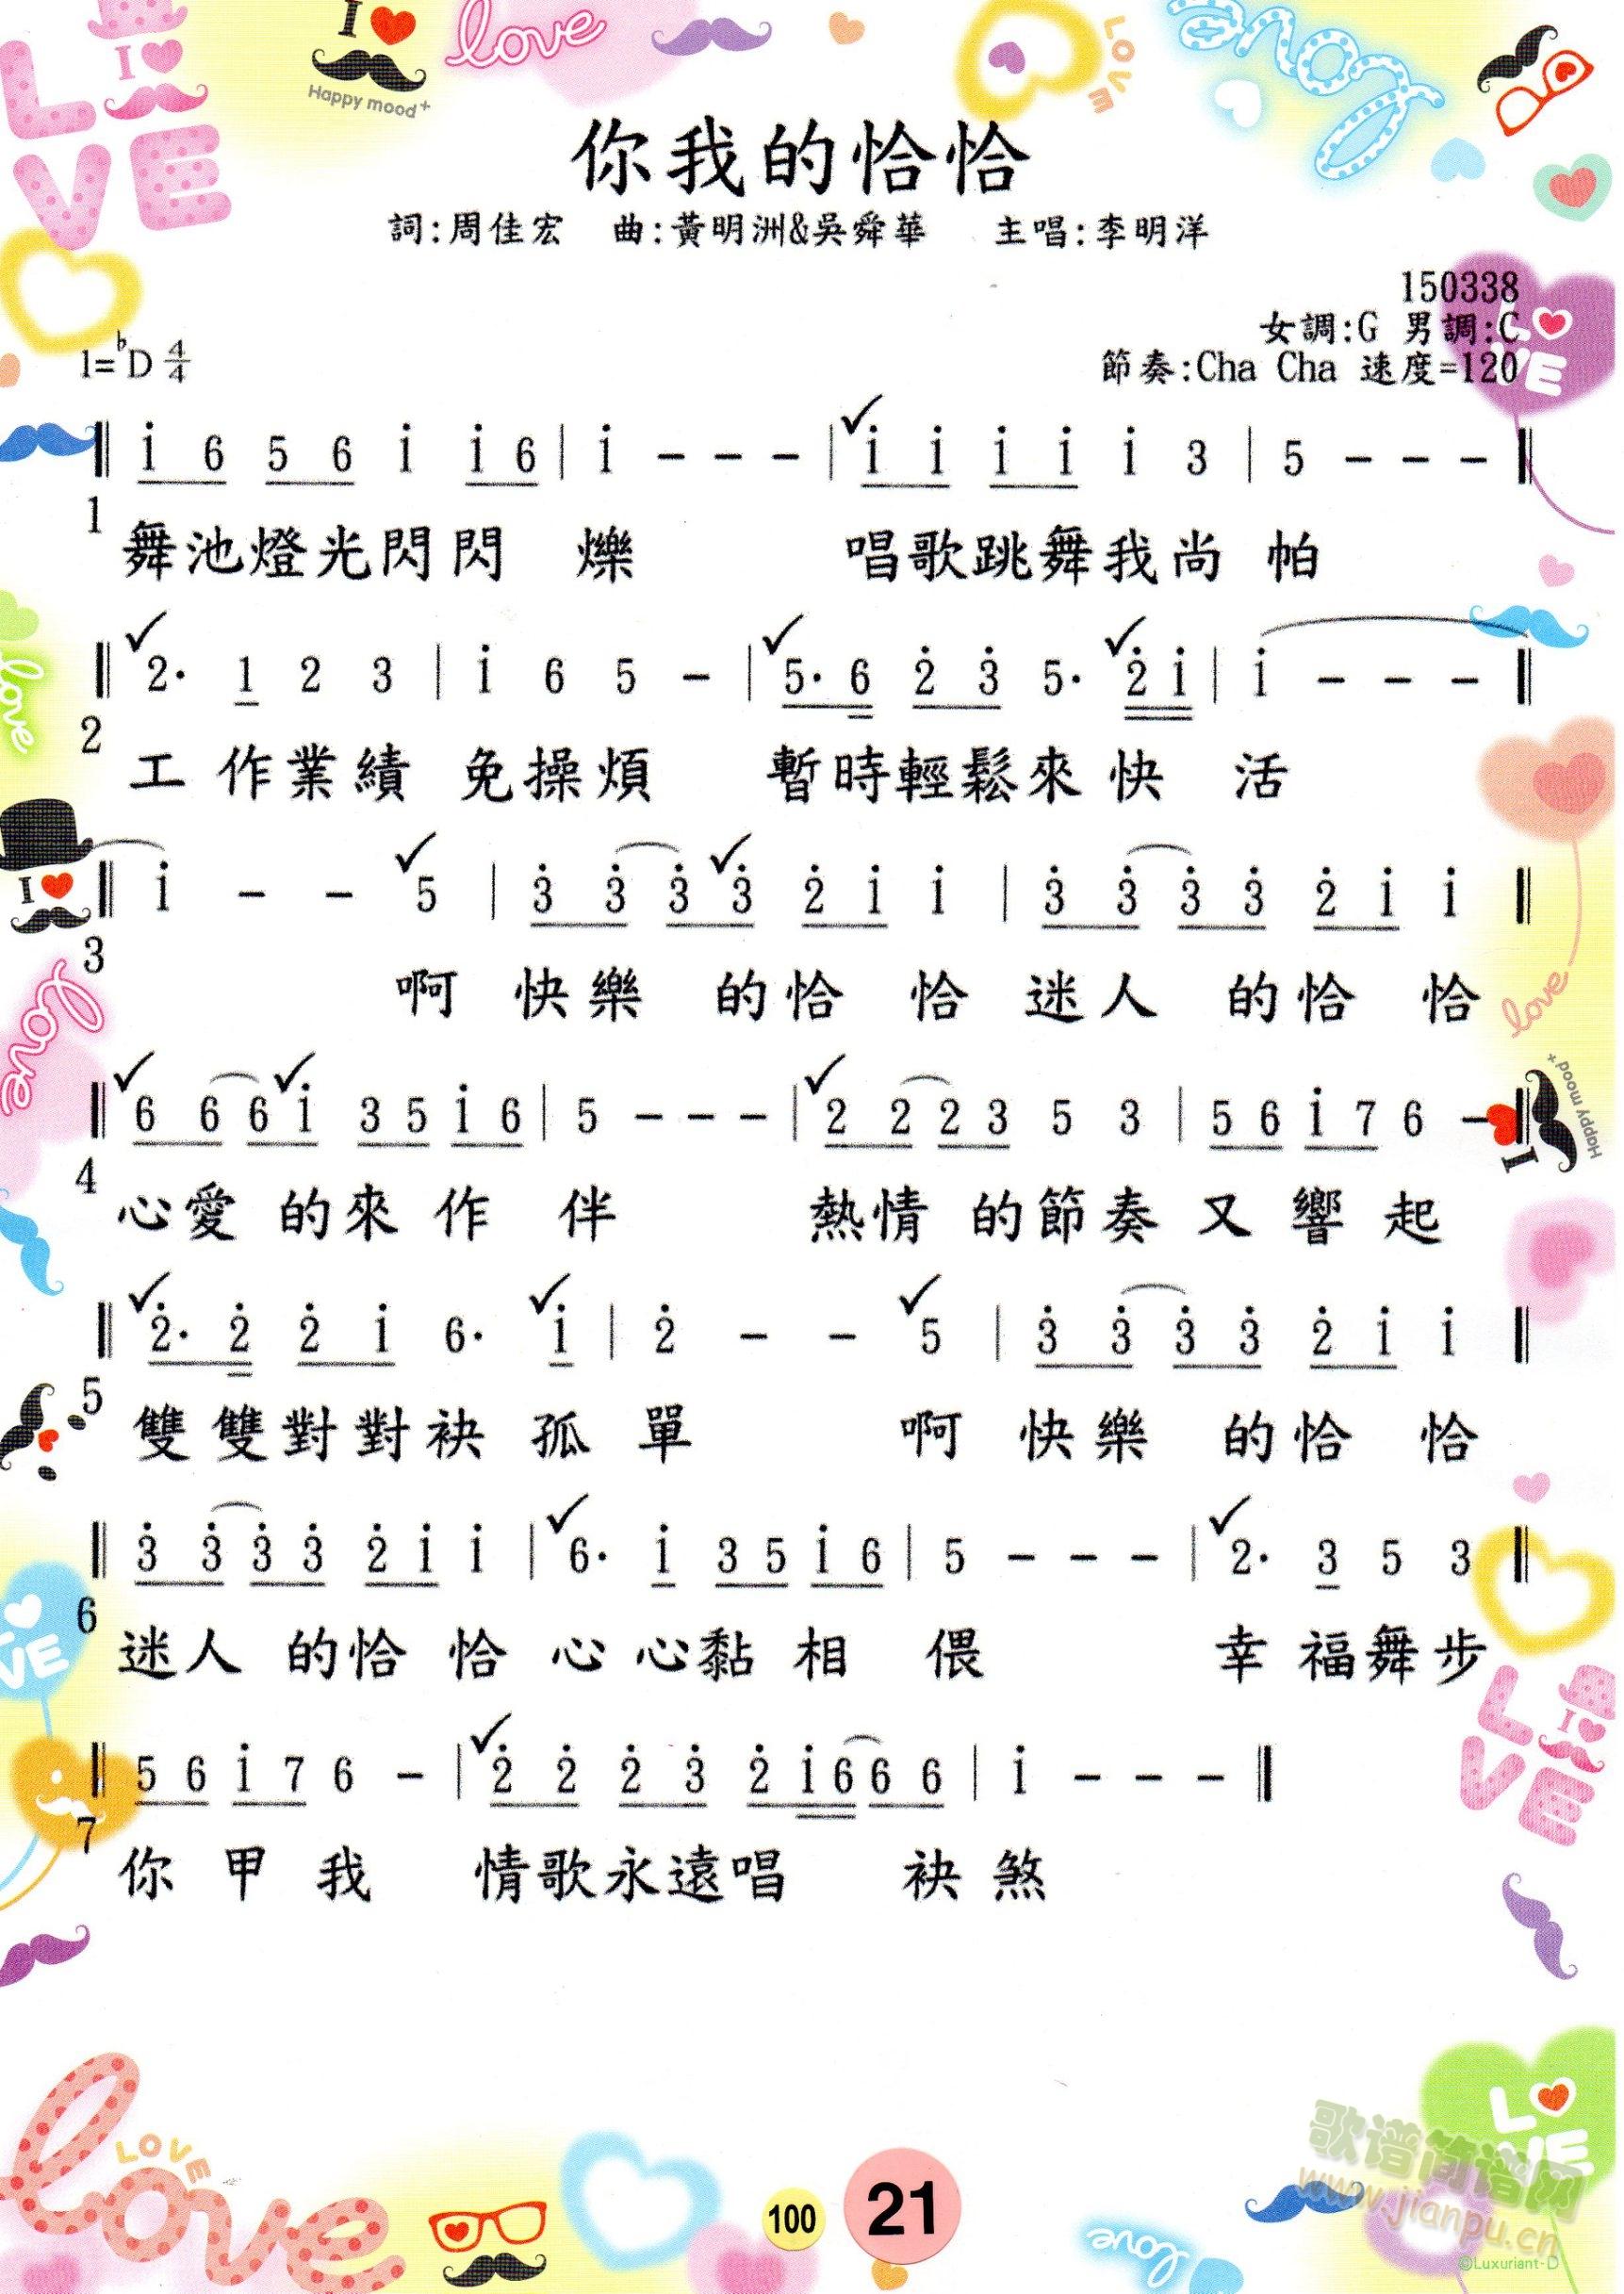 I
Happy mood+
love
LOVE
Love
I
LOVE
你我的恰恰
詞:周佳宏 曲:黃明洲&吳舜華 主唱:李明洋
150338
女調:G 男調:C
1=♭D 4/4 節奏:Cha Cha 速度=120
i 6 5 6 i i 6 | i - - - | i i i i i 3 | 5 - - -
1
舞池燈光閃閃 爍 唱歌跳舞我尚 帕
2· 1 2 3 | i 6 5 - | 5· 6 2 3 5· 2 i | i - - -
2
工 作業績 免操煩 暫時輕鬆來 快 活
i - - 5 | 3 3 3 3 2 i i | 3 3 3 3 2 i i
3
啊 快樂 的恰 恰 迷人 的恰 恰
6 6 6 i 3 5 i 6 | 5 - - - | 2 2 2 3 5 3 | 5 6 i 7 6 -
4
心愛 的來 作 伴 熱情 的節奏 又 響 起
2· 2 2 i 6· i | 2 - - 5 | 3 3 3 3 2 i i
5
雙雙對對袂 孤 單 啊 快樂 的恰 恰
3 3 3 3 2 i i | 6· i 3 5 i 6 | 5 - - - | 2· 3 5 3
6
迷人 的恰 恰 心 心黏 相 偎 幸 福舞步
5 6 i 7 6 - | 2 2 2 3 2 i 6 6 6 | i - - -
7
你 甲 我 情歌永遠唱 袂 煞
love
LOVE
100
21
love
LOVE
歌谱简谱网
www.jianpu.cn
©Luxuriant-D